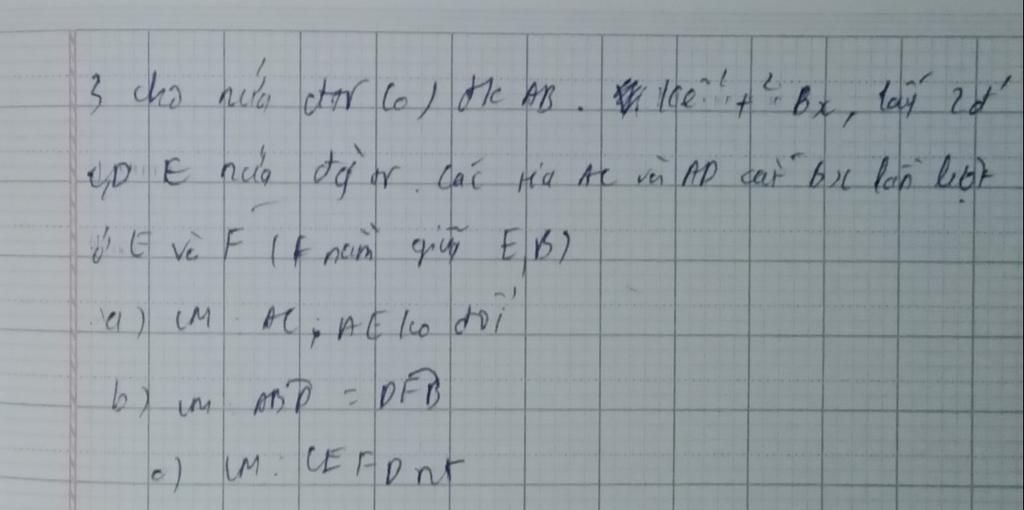 3 cho nửa đtr (O) đk AB. kẻ t² Bx, lấy 2đ'
C,D E nửa đg tr. Các tia AC và AD cắt Bx lần lượt
ở E và F (F nằm giữa E,B)
a) CM: AC; AE ko đổi
b) CM ABD = DFB
c) CM: CEFD nt